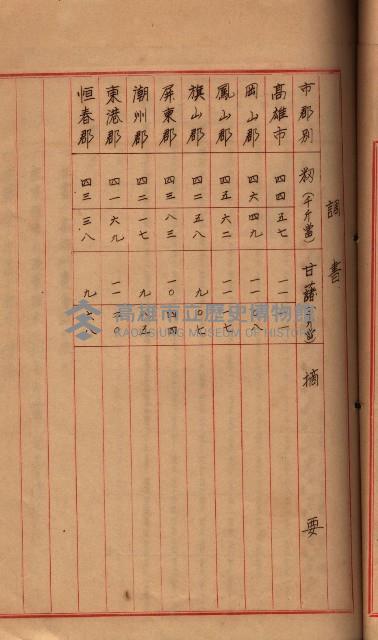 調書
市郡別 籾(千斤當) 甘藷(千斤當) 摘要
高雄市 四四 五七 一一 一一
岡山郡 四六 四九 一一 一八
鳳山郡 四五 六二 一一 一七
旗山郡 四二 五八 九 〇七
屏東郡 四三 八三 一〇 四四
潮州郡 四二 一七 九 五
東港郡 四一 六九 一一 三〇
恒春郡 四三 三八 九 六八
高雄市立歷史博物館
KAOHSIUNG MUSEUM OF HISTORY